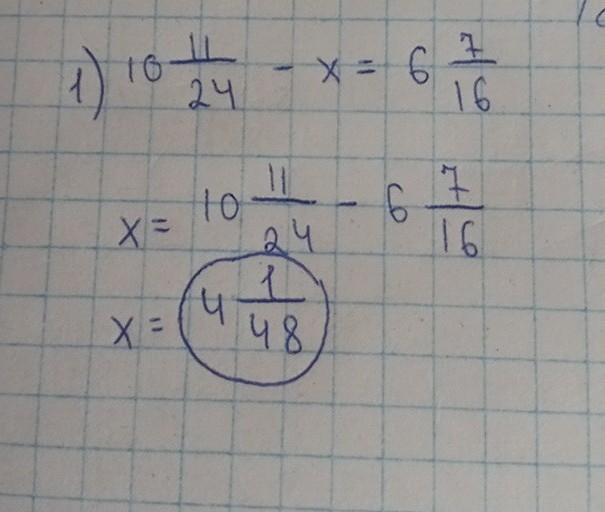 1) 10 11/24 - x = 6 7/16
x = 10 11/24 - 6 7/16
x = 4 1/48